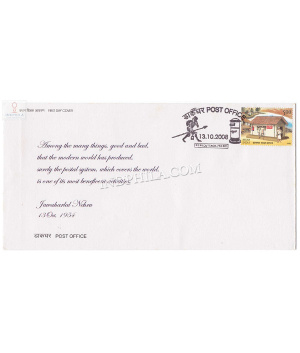 FIRST DAY COVER
डाकघर POST OFFICE
13.10.2008
Among the many things, good and bad,
that the modern world has produced,
surely the postal system, which covers the world,
is one of its most beneficent activities
Jawaharlal Nehru
13 Oct. 1954
डाकघर POST OFFICE
INDIPHILA.COM